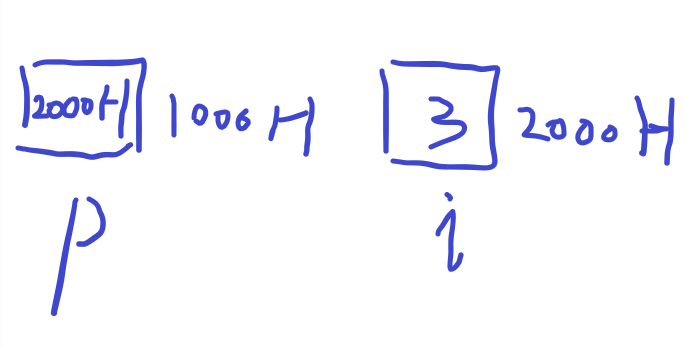 2000H 1000H 3 2000H
p i